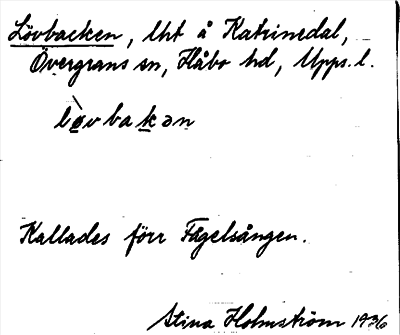 Lövbacken, lht å Katrinedal,
Övergrans sn, Håbo hd, Upps. l.
lø̀vbakən
Kallades förr Fågelsången.
Stina Holmström 1936